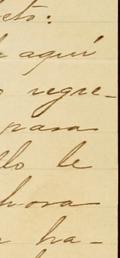 eto:
aquí
regre-
pasa
llo le
hora
ha-